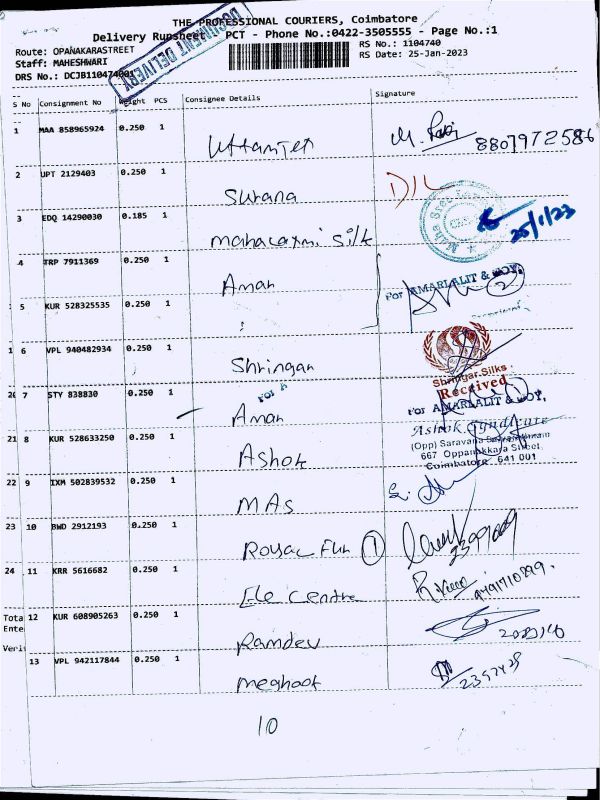 THE PROFESSIONAL COURIERS, Coimbatore
Delivery Runsheet PCT - Phone No.:0422-3505555 - Page No.:1
Route: OPANAKARASTREET
RS No.: 1104740
Staff: MAHESHWARI
RS Date: 25-Jan-2023
DRS No.: DCJB110474001
DOCUMENT DELIVERY
S No Consignment No Weight PCS Consignee Details Signature
1 MAA 858965924 0.250 1 8807972586
2 UPT 2129403 0.250 1 Surana D/L
3 EDQ 14290030 0.185 1 mahalaxmi silk 25/1/23
4 TRP 7911369 0.250 1 Aman
For AMARLALIT &
5 KUR 528325535 0.250 1
6 VPL 940482934 0.250 1 Shringar
Shringar Silks
Received
20 7 STY 838830 0.250 1 Aman
For AMARLALIT &
21 8 KUR 528633250 0.250 1 Ashok
Ashok Syndicate
(Opp) Saravana
667 Oppanakkara Street,
Coimbatore 641 001
22 9 IXM 502839532 0.250 1 MAS
23 10 BWD 2912193 0.250 1 Royal Fun 1
24 11 KRR 5616682 0.250 1 Ele centre
Tota 12 KUR 608905263 0.250 1 Ramdev
Ente
Veri
13 VPL 942117844 0.250 1 meghoot
10